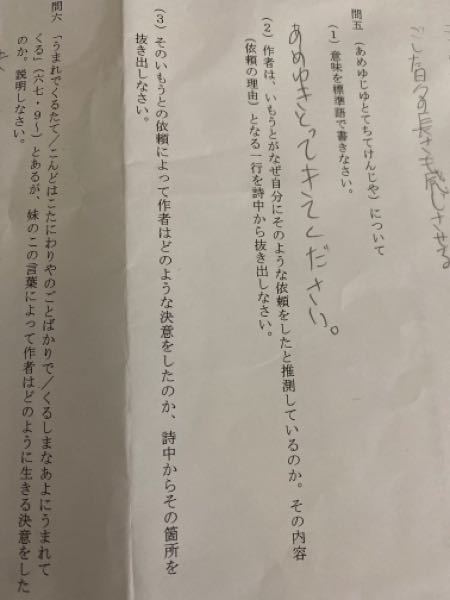 ごした日々の長さを感じさせる
問五 (あめゆじゆとてちてけんじや)について
(1) 意味を標準語で書きなさい。
あめゆきとってきてください。
(2) 作者は、いもうとがなぜ自分にそのような依頼をしたと推測しているのか。その内容
(依頼の理由)となる一行を詩中から抜き出しなさい。
(3) そのいもうとの依頼によって作者はどのような決意をしたのか、詩中からその箇所を
抜き出しなさい。
問六 「うまれでくるたて/こんどはこたにわりやのごとばかりで/くるしまなあよにうまれて
くる」(六七・9〜)とあるが、妹のこの言葉によって作者はどのように生きる決意をした
のか。説明しなさい。